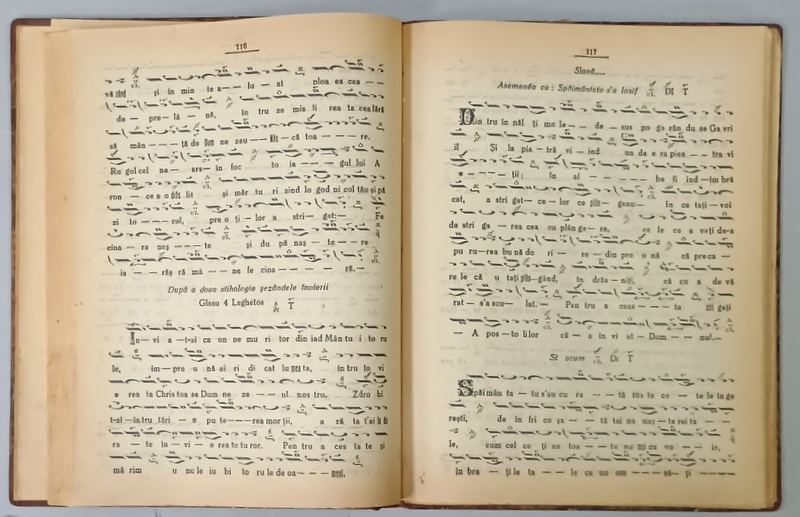 116
vă și în min te a — — lu — at ploa ea cea — —
de — pre — lâ — nă, în tru ze mis li rea ta cea fără
să mân — — — — ță de ne zeu — — că toa — — — — re.
Ru gul cel ne — ars — în foc to ia — — — gul lui A
ron — ce a o lit și măr tu ri sind lo god ni cul tău și pă
zi to — — — rul, preo ți — lor a stri — gat: — Fe
cioa — ra naș — — — — te și du pă naș — te — — re
ia — — — răș ră mâ — — ne le cioa — — — — ră.—
După a doua stihologie șezândele Invierii
Glasu 4 Leghetos
In — vi a — t-ai ca un ne mu ri tor din iad Mân tu i to ru
le, îm — pre u nă ai ri di cat lu ta, întru în vi
e rea ta Chris toa se Dum ne ze — — — ul nos tru. Zdro bi
t-ai — în tru tări — e pu te — — — rea mor ții, a ră ta t'ai
ra — — te în — vi — e rea tu tu ror. Pen tru a ces ta te și
mă rim u ne le iu bi to ru le de oa — — — —
117
Slavă.....
Asemenea cu: Spăimântatu s'a Iosif DI
Din tru în năl ți me le — — de — sus po go rân du se Ga vri
il Și la pia — tră vi — ind un da e ra pia — — tra vi
e — — — — ții; în al — — — — — — be fi ind — îm bră
cat, a stri gat — ce — lor ce geau: — In ce ta ți — voi
de stri ga — rea cea cu plân ge — re, ce le ce a ve ți de-a
pu ru — rea bu nă do ri — re — din pre u nă că pre ca —
re le că u ta ți gând, în drăs — ni ți, că cu a de vă
rat — s'a scu — lat. — Pen tru a ceas — — — ta ga ți
— A pos — to li lor că — a în vi at — Dum — — nul. —
Si acum DI
Spăi mân ta — tu s'au cu ra — — — tă toa ta ce — te le în ge
rești, de în fri co șa — — tă tai na naș — te rei ta — —
le, cum cel ce ți ne toa — — te nu cu va — — ia,
în bra — ți le ta — — le ca un om — — — să — ți — — — —